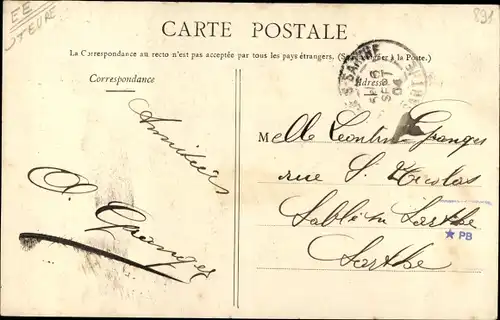 EE
891
CARTE POSTALE
La Correspondance au recto n'est pas acceptée par tous les pays étrangers. (Se renseigner à la Poste.)
Correspondance
Adresse
SARTHE
SEPT
04
Amitiés
Granger
Melle Léontine Granger
rue S. Nicolas
Sablé sur Sarthe
★ PB
Sarthe